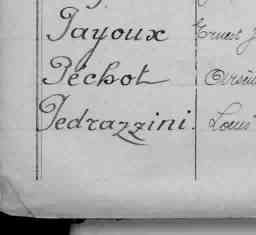 Payoux Ernest J
Péchot Arsèn
Pedrazzini. Louis